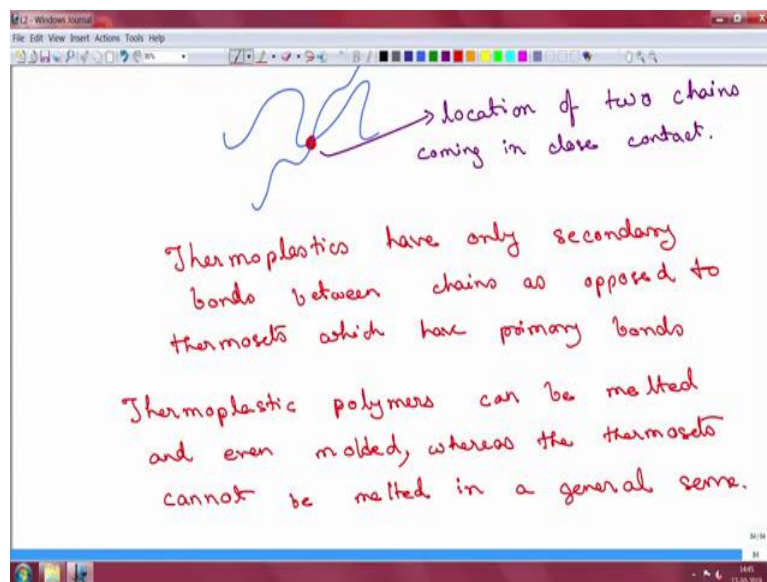 L2 - Windows Journal
File Edit View Insert Actions Tools Help
location of two chains
coming in close contact.
Thermoplastics have only secondary
bonds between chains as opposed to
thermosets which have primary bonds
Thermoplastic polymers can be melted
and even molded, whereas the thermosets
cannot be melted in a general sense.
34/34
34